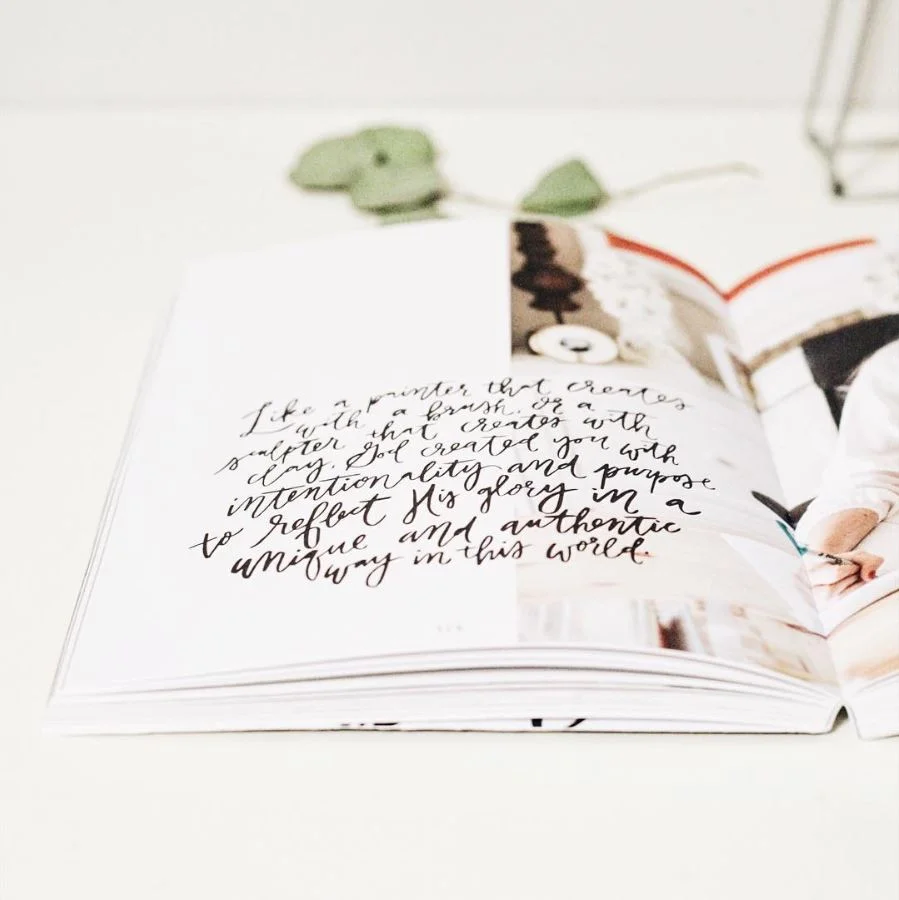 Like a painter that creates
with a brush, or a
sculpter that creates with
clay, God created you with
intentionality and purpose
to reflect His glory in a
unique and authentic
way in this world.